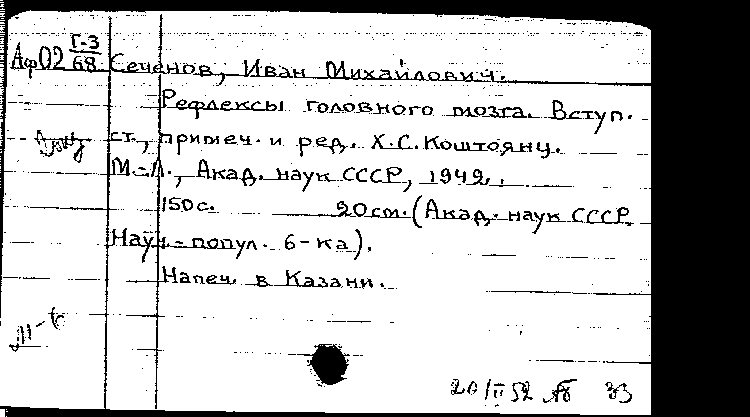 Аф02 Г-3/68 Сеченов, Иван Михайлович.
Рефлексы головного мозга. Вступ.
ст., примеч. и ред. Х.С.Коштоянц.
М.-Л., Акад. наук СССР, 1942.
150с. 20см. (Акад. наук СССР.
Науч-попул. б-ка).
Напеч. в Казани.
20/II 52